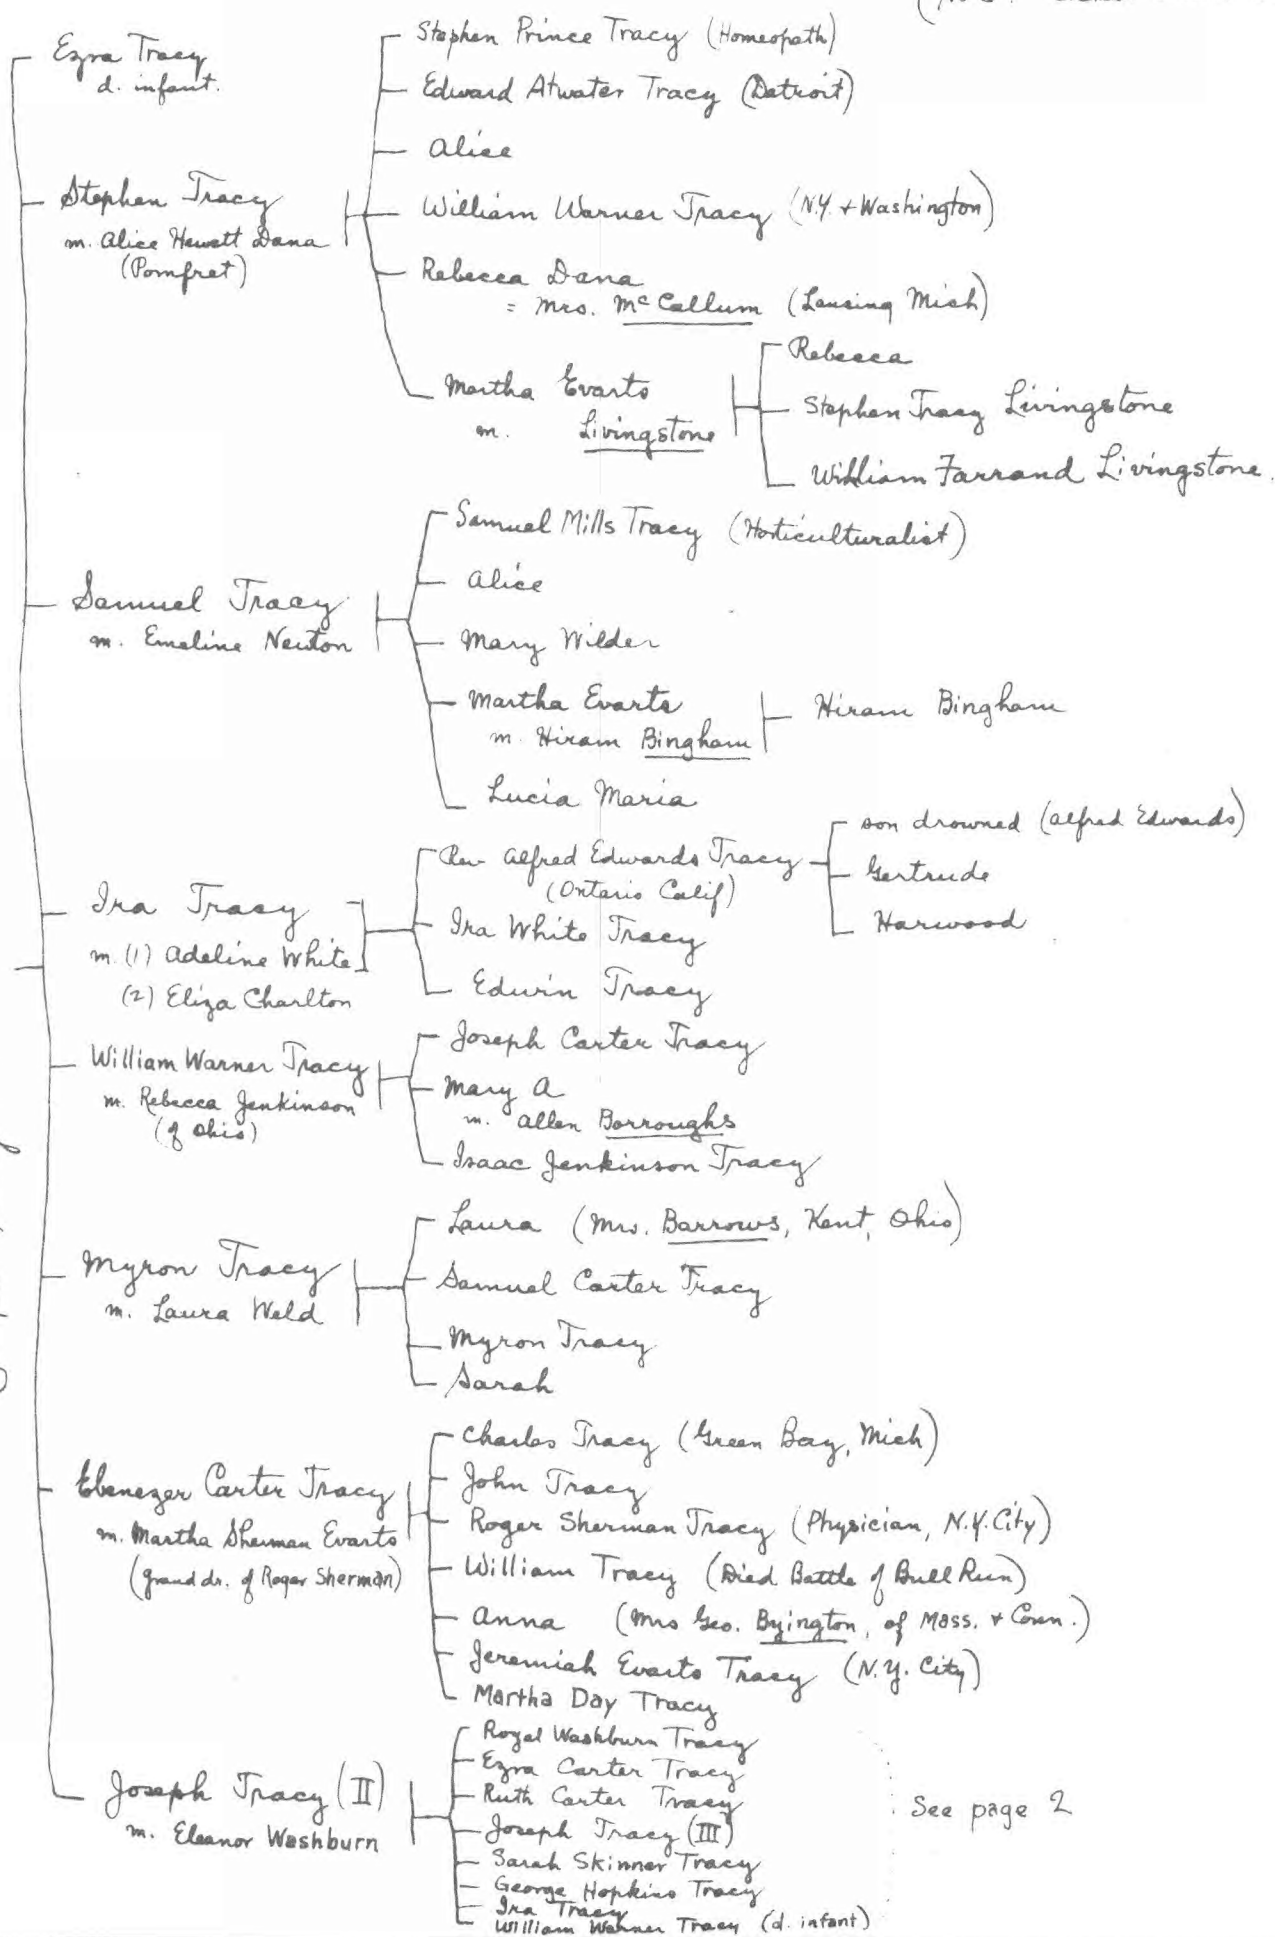 Ezra Tracy
d. infant.
Stephen Tracy
m. Alice Hewett Dana
(Pomfret)
Stephen Prince Tracy (Homeopath)
Edward Atwater Tracy (Detroit)
Alice
William Warner Tracy (N.Y. + Washington)
Rebecca Dana
= Mrs. McCallum (Lansing Mich)
Martha Evarts
m. Livingstone
Rebecca
Stephen Tracy Livingstone
William Farrand Livingstone.
Samuel Tracy
m. Emeline Newton
Samuel Mills Tracy (Horticulturalist)
Alice
Mary Wilder
Martha Evarts
m. Hiram Bingham
Hiram Bingham
Lucia Maria
Ira Tracy
m. (1) Adeline White
(2) Eliza Charlton
Rev Alfred Edwards Tracy
(Ontario Calif)
son drowned (Alfred Edwards)
Gertrude
Harwood
Ira White Tracy
Edwin Tracy
William Warner Tracy
m. Rebecca Jenkinson
(of Ohio)
Joseph Carter Tracy
Mary A
m. Allen Borroughs
Isaac Jenkinson Tracy
Myron Tracy
m. Laura Weld
Laura (Mrs. Barrows, Kent, Ohio)
Samuel Carter Tracy
Myron Tracy
Sarah
Ebenezer Carter Tracy
m. Martha Sherman Evarts
(grand dr. of Roger Sherman)
Charles Tracy (Green Bay, Mich)
John Tracy
Roger Sherman Tracy (Physician, N.Y. City)
William Tracy (Died Battle of Bull Run)
Anna (Mrs Geo. Byington, of Mass. + Conn.)
Jeremiah Evarts Tracy (N.Y. City)
Martha Day Tracy
Joseph Tracy (II)
m. Eleanor Washburn
Royal Washburn Tracy
Ezra Carter Tracy
Ruth Carter Tracy
Joseph Tracy (III)
Sarah Skinner Tracy
George Hopkins Tracy
Ira Tracy
William Warner Tracy (d. infant)
See page 2